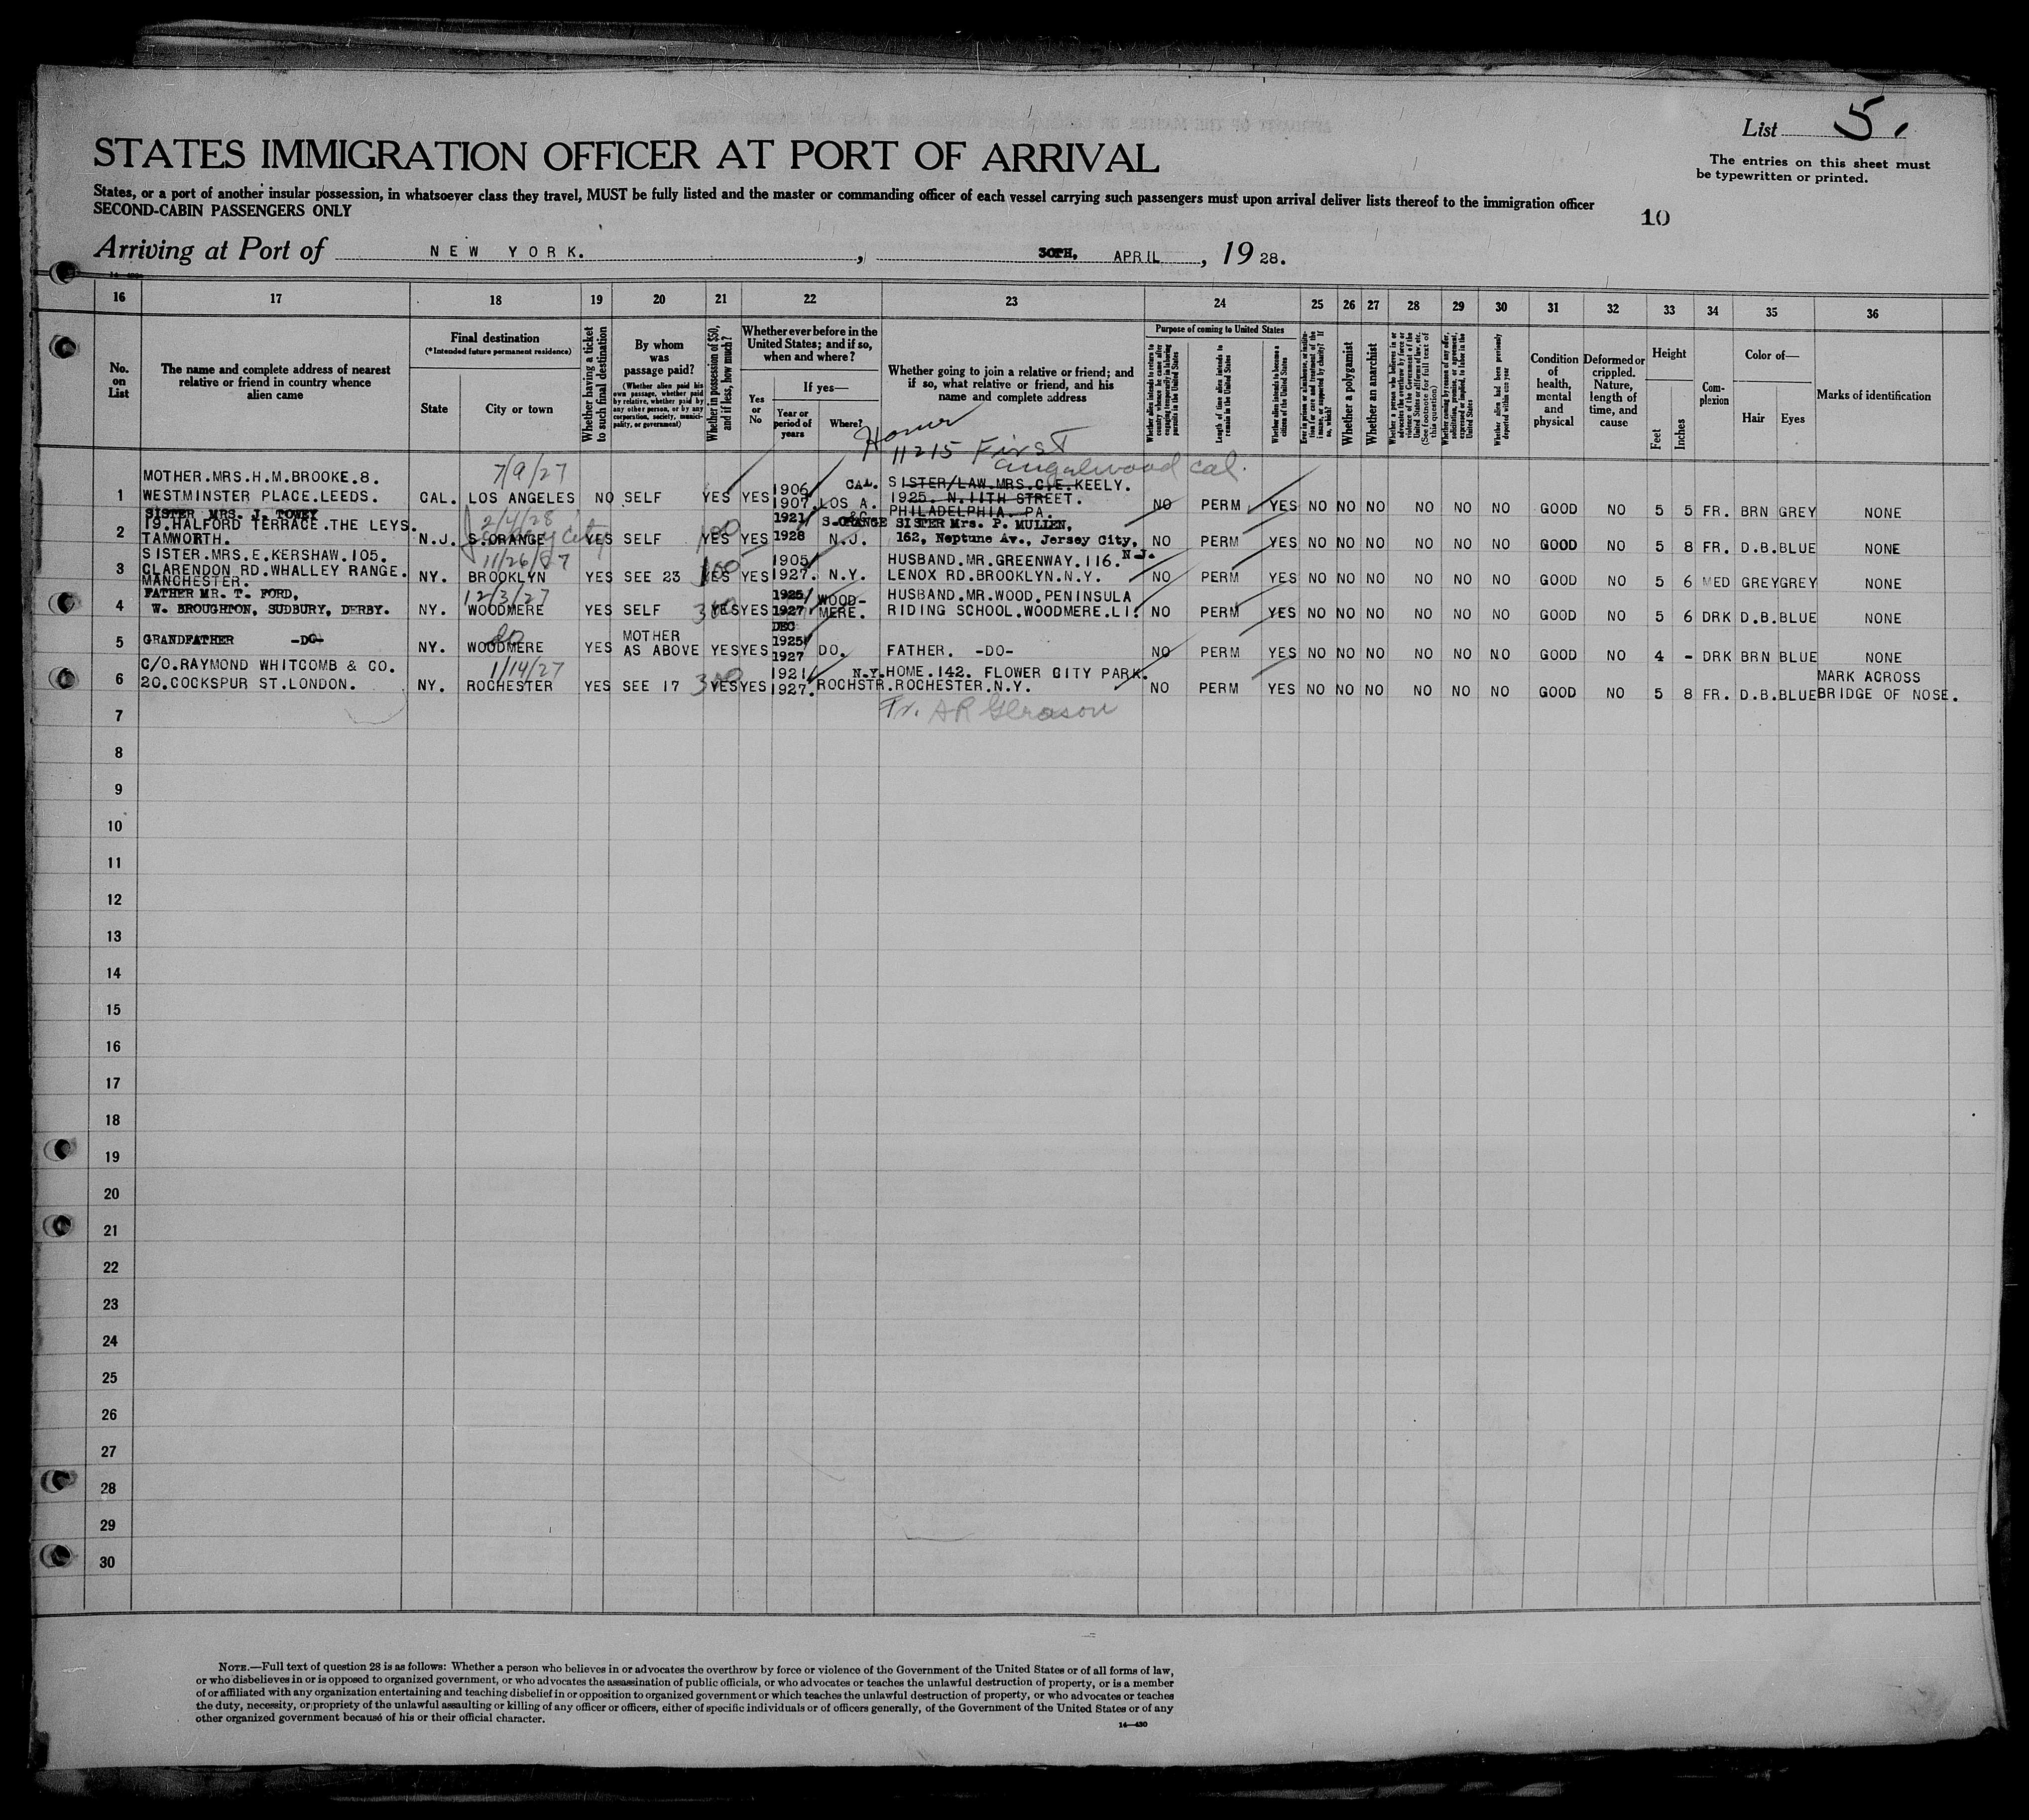 List 5.
The entries on this sheet must
be typewritten or printed.
STATES IMMIGRATION OFFICER AT PORT OF ARRIVAL
States, or a port of another insular possession, in whatsoever class they travel, MUST be fully listed and the master or commanding officer of each vessel carrying such passengers must upon arrival deliver lists thereof to the immigration officer
SECOND-CABIN PASSENGERS ONLY
10
Arriving at Port of NEW YORK. , 30TH, APRIL , 19 28.
16 17 18 19 20 21 22 23 24 25 26 27 28 29 30 31 32 33 34 35 36
No. on List
The name and complete address of nearest
relative or friend in country whence
alien came
Final destination
(*Intended future permanent residence)
State
City or town
Whether having a ticket
to such final destination
By whom
was
passage paid?
(Whether alien paid his
own passage, whether paid
by relative, whether paid by
any other person, or by any
corporation, society, munici-
pality, or government)
Whether in possession of $50,
and if less, how much?
Whether ever before in the
United States; and if so,
when and where?
Yes
or
No
If yes—
Year or
period of
years
Where?
Whether going to join a relative or friend; and
if so, what relative or friend, and his
name and complete address
Purpose of coming to United States
Whether alien intends to return to
country whence he came after
engaging temporarily in laboring
pursuits in the United States
Length of time alien intends to
remain in the United States
Whether alien intends to become a
citizen of the United States
Whether a polygamist
Whether an anarchist
(See footnote for full text of
this question)
Whether alien had been previously
deported within one year
Condition
of
health,
mental
and
physical
Deformed or
crippled.
Nature,
length of
time, and
cause
Height
Feet
Inches
Com-
plexion
Color of—
Hair
Eyes
Marks of identification
Home
11215 First
7/9/27
1 MOTHER.MRS.H.M.BROOKE.8.
WESTMINSTER PLACE.LEEDS. CAL. LOS ANGELES NO SELF YES YES 1906 1907. CAL. LOS A. SISTER/LAW.MRS.C.E.KEELY.
1925. N.11TH STREET.
PHILADELPHIA. PA. NO PERM YES NO NO NO NO NO NO GOOD NO 5 5 FR. BRN GREY NONE
2/4/28
Jersey City
2 SISTER MRS. J. TOVEY
19.HALFORD TERRACE.THE LEYS.
TAMWORTH. N.J. S.ORANGE YES SELF 100 YES YES 1921 1928 S.ORANGE N.J. SISTER Mrs. P. MULLEN,
162, Neptune Av., Jersey City, N.J. NO PERM YES NO NO NO NO NO NO GOOD NO 5 8 FR. D.B. BLUE NONE
11/26/27
3 SISTER.MRS.E.KERSHAW.105.
CLARENDON RD.WHALLEY RANGE.
MANCHESTER. NY. BROOKLYN YES SEE 23 100 YES YES 1905 1927. N.Y. HUSBAND.MR.GREENWAY.116.
LENOX RD.BROOKLYN.N.Y. NO PERM YES NO NO NO NO NO NO GOOD NO 5 6 MED GREY GREY NONE
12/3/27
4 FATHER MR. T. FORD,
W. BROUGHTON, SUDBURY, DERBY. NY. WOODMERE YES SELF 300 YES YES 1925 1927 WOOD-
MERE. HUSBAND.MR.WOOD.PENINSULA
RIDING SCHOOL.WOODMERE.LI. NO PERM YES NO NO NO NO NO NO GOOD NO 5 6 DRK D.B. BLUE NONE
do
5 GRANDFATHER -DO- NY. WOODMERE YES MOTHER
AS ABOVE YES YES DEC 1925 1927 DO. FATHER. -DO- NO PERM YES NO NO NO NO NO NO GOOD NO 4 - DRK BRN BLUE NONE
1/14/27
6 C/O.RAYMOND WHITCOMB & CO.
20.COCKSPUR ST.LONDON. NY. ROCHESTER YES SEE 17 300 YES YES 1921 1927. N.Y. ROCHSTR. HOME.142. FLOWER CITY PARK.
ROCHESTER.N.Y. NO PERM YES NO NO NO NO NO NO GOOD NO 5 8 FR. D.B. BLUE MARK ACROSS
BRIDGE OF NOSE.
7 Fr. AR Gleason
8
9
10
11
12
13
14
15
16
17
18
19
20
21
22
23
24
25
26
27
28
29
30
NOTE.—Full text of question 28 is as follows: Whether a person who believes in or advocates the overthrow by force or violence of the Government of the United States or of all forms of law,
or who disbelieves in or is opposed to organized government, or who advocates the assassination of public officials, or who advocates or teaches the unlawful destruction of property, or is a member
of or affiliated with any organization entertaining and teaching disbelief in or opposition to organized government or which teaches the unlawful destruction of property, or who advocates or teaches
the duty, necessity, or propriety of the unlawful assaulting or killing of any officer or officers, either of specific individuals or of officers generally, of the Government of the United States or of any
other organized government because of his or their official character.
14—430